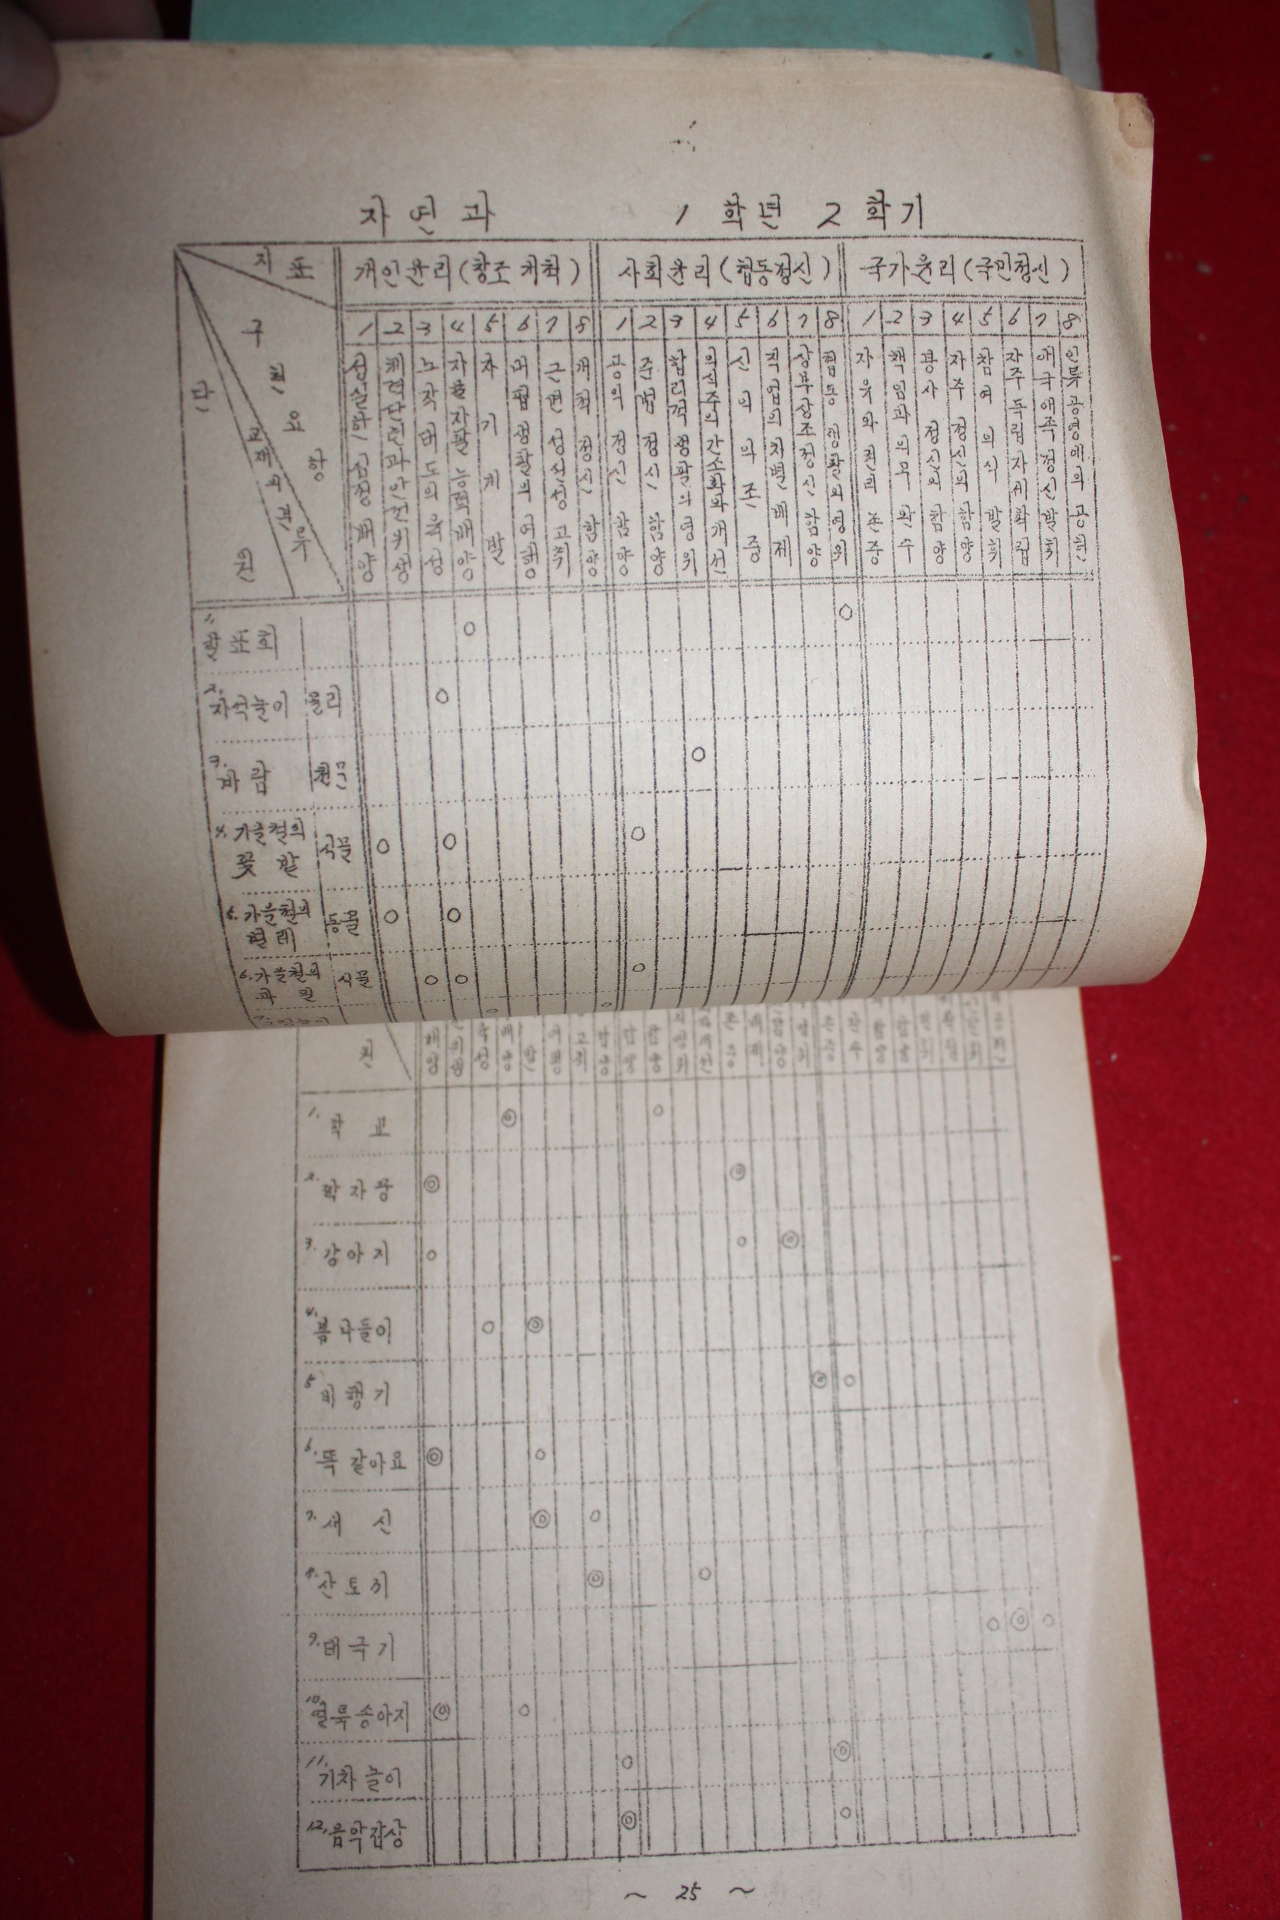 자연과 1학년 2학기
지표
구현요항
교재의 분류
단원
개인윤리(창조 개척)
사회윤리(협동정신)
국가윤리(국민정신)
1 2 3 4 5 6 7 8 1 2 3 4 5 6 7 8 1 2 3 4 5 6 7 8
성실한 심정 배양
체력단련과 안전위생
노작 태도의 육성
자율자활 능력배양
자기계발
근면 성실성 고취
개척 정신 함양
공의 정신 함양
준법 정신 함양
합리적 생활의 영위
의식주의 간소화와 개선
신의의 존중
직업의 차별 배제
상부상조정신 함양
협동 생활의 영위
자유와 권리 존중
책임과 의무 완수
봉사 정신의 함양
자주 정신의 함양
참여 의식 발휘
자주 독립 자세 확립
애국 애족 정신 발휘
인류 공영에의 공헌
1. 학교
2. 학자광
3. 강아지
4. 봄나들이
5. 비행기
6. 똑 같아요
7. 새 신
8. 산토끼
9. 태극기
10. 얼룩송아지
11. 기차놀이
12. 음악감상
1. 발표회
2. 자석놀이 물리
3. 바람 천문
4. 가을철의 꽃밭 식물
5. 가을철의 벌레 동물
6. 가을철의 과일 식물
~ 25 ~